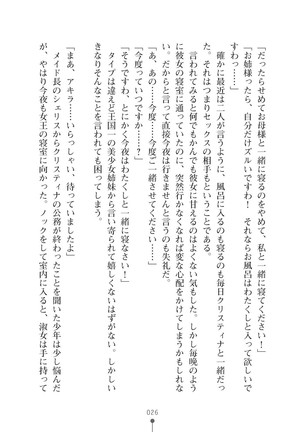 「だったらせめてお母様と一緒に寝るのをやめて、私と一緒に寝てください！」
「お姉様ったら、自分だけズルいですわ！　それならお風呂はわたくしと入って欲しいで
すわっ……」
　確かに最近は二人が言うように、風呂に入るのも寝るのも毎日クリスティナと一緒だっ
た。それはつまりセックスの相手もということである。
　言われてみると何でもかんでも彼女に甘えるのはよくない気もした。しかし毎晩のよう
に彼女の寝室に通っていたのに、突然行かなくなれば変な心配をかけてしまうかもしれな
い。だからと言って直接今夜は行きませんと言うのも失礼だ。
「あ、あの……今度、今度ご一緒させてください……」
「今度っていつですか！」
「そうですわ、とにかく今夜はわたくしと一緒に寝なさい！」
　タイプは違えど王国一の美少女姉妹から言い寄られて嬉しくないはずがない。しかし、
きなりそんなことを言われても困ってしまう。
「まあ、アキラ……いらっしゃい、待っていましたよ」
　メイド長のシェリスからクリスティナの公務が終わったことを聞いた少年は少し悩んだ
が、やはり今夜も女王の寝室に向かった。ノックをして室内に入ると、淑女は手に持って
026